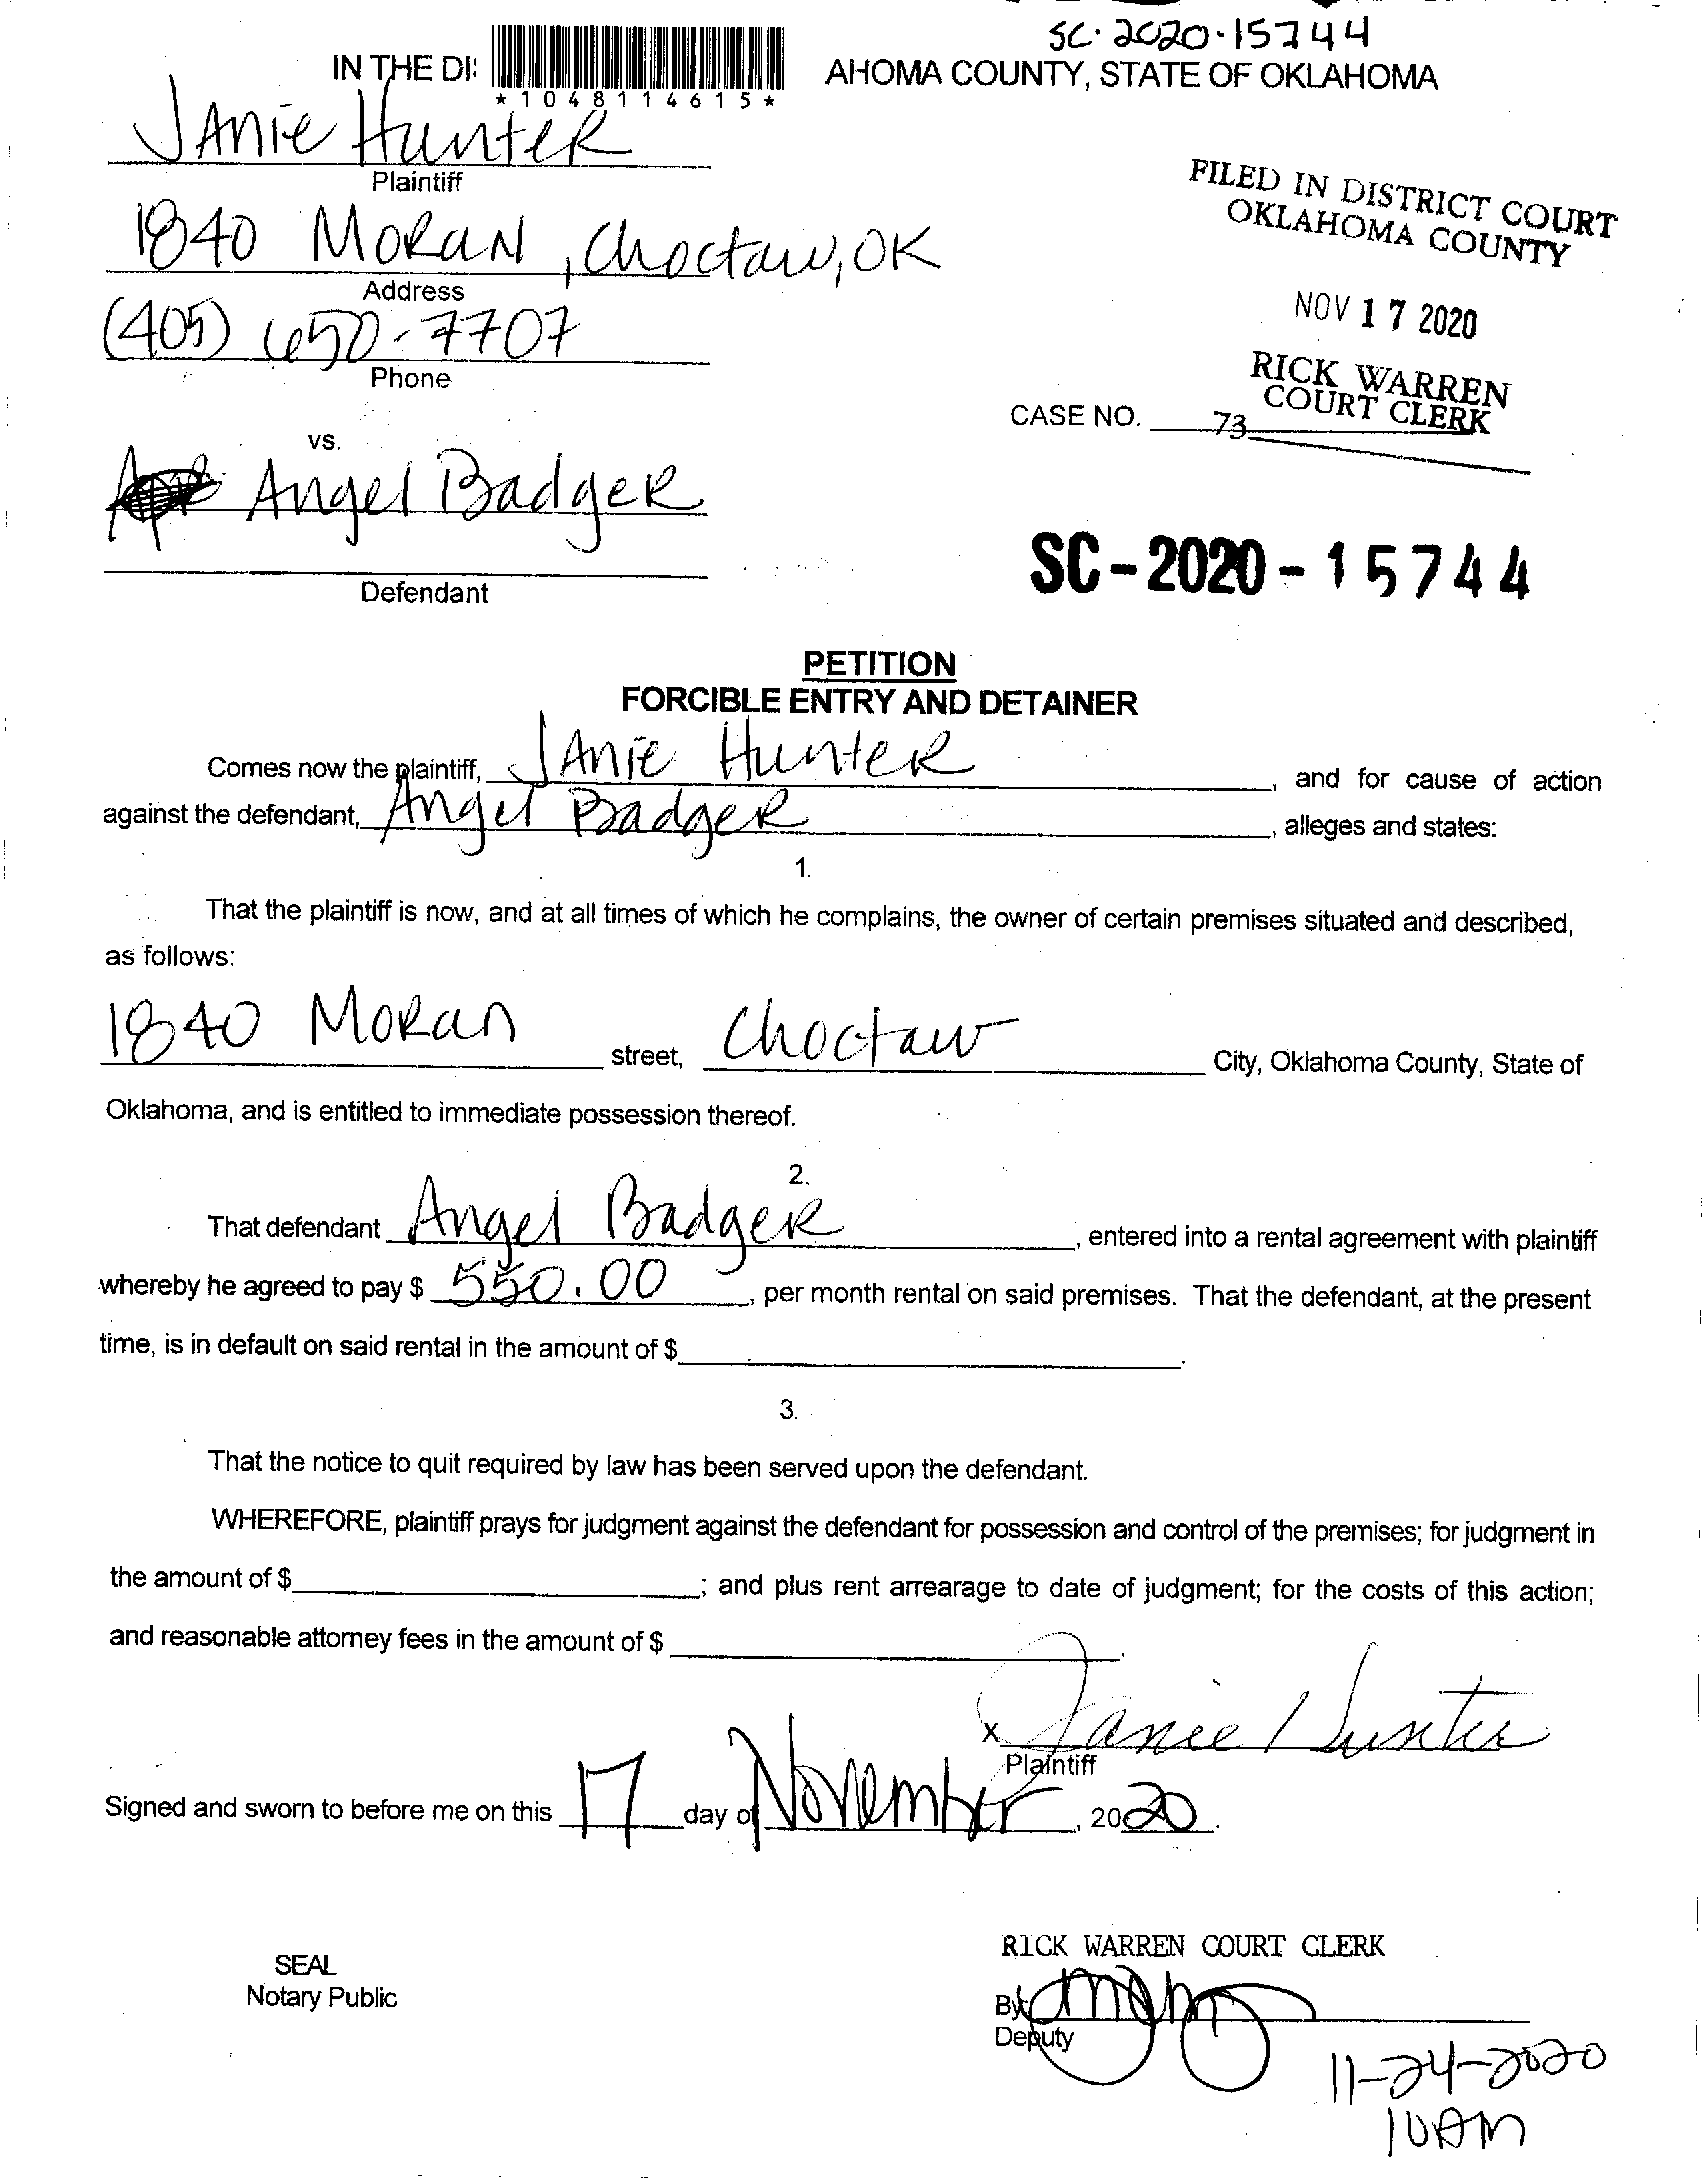 SC-2020-15744
IN THE DI
*1048114615*
AHOMA COUNTY, STATE OF OKLAHOMA
JANiE HunteR
Plaintiff
1840 MoRaN, Choctaw, OK
Address
(405) 650-7707
Phone
FILED IN DISTRICT COURT
OKLAHOMA COUNTY
NOV 17 2020
RICK WARREN
COURT CLERK
CASE NO.
73
vs.
Angel BadgeR
Defendant
SC-2020-15744
PETITION
FORCIBLE ENTRY AND DETAINER
Comes now the plaintiff, JANiE HunteR, and for cause of action
against the defendant, Angel BadgeR, alleges and states:
1.
That the plaintiff is now, and at all times of which he complains, the owner of certain premises situated and described,
as follows:
1840 MoRan street, Choctaw City, Oklahoma County, State of
Oklahoma, and is entitled to immediate possession thereof.
2.
That defendant Angel BadgeR, entered into a rental agreement with plaintiff
whereby he agreed to pay $ 550.00, per month rental on said premises. That the defendant, at the present
time, is in default on said rental in the amount of $
3.
That the notice to quit required by law has been served upon the defendant.
WHEREFORE, plaintiff prays for judgment against the defendant for possession and control of the premises; for judgment in
the amount of $ ; and plus rent arrearage to date of judgment; for the costs of this action;
and reasonable attorney fees in the amount of $ .
x Janie Hunter
Plaintiff
Signed and sworn to before me on this 17 day of November, 2020.
SEAL
Notary Public
RICK WARREN COURT CLERK
By
Deputy
11-24-2020
10AM